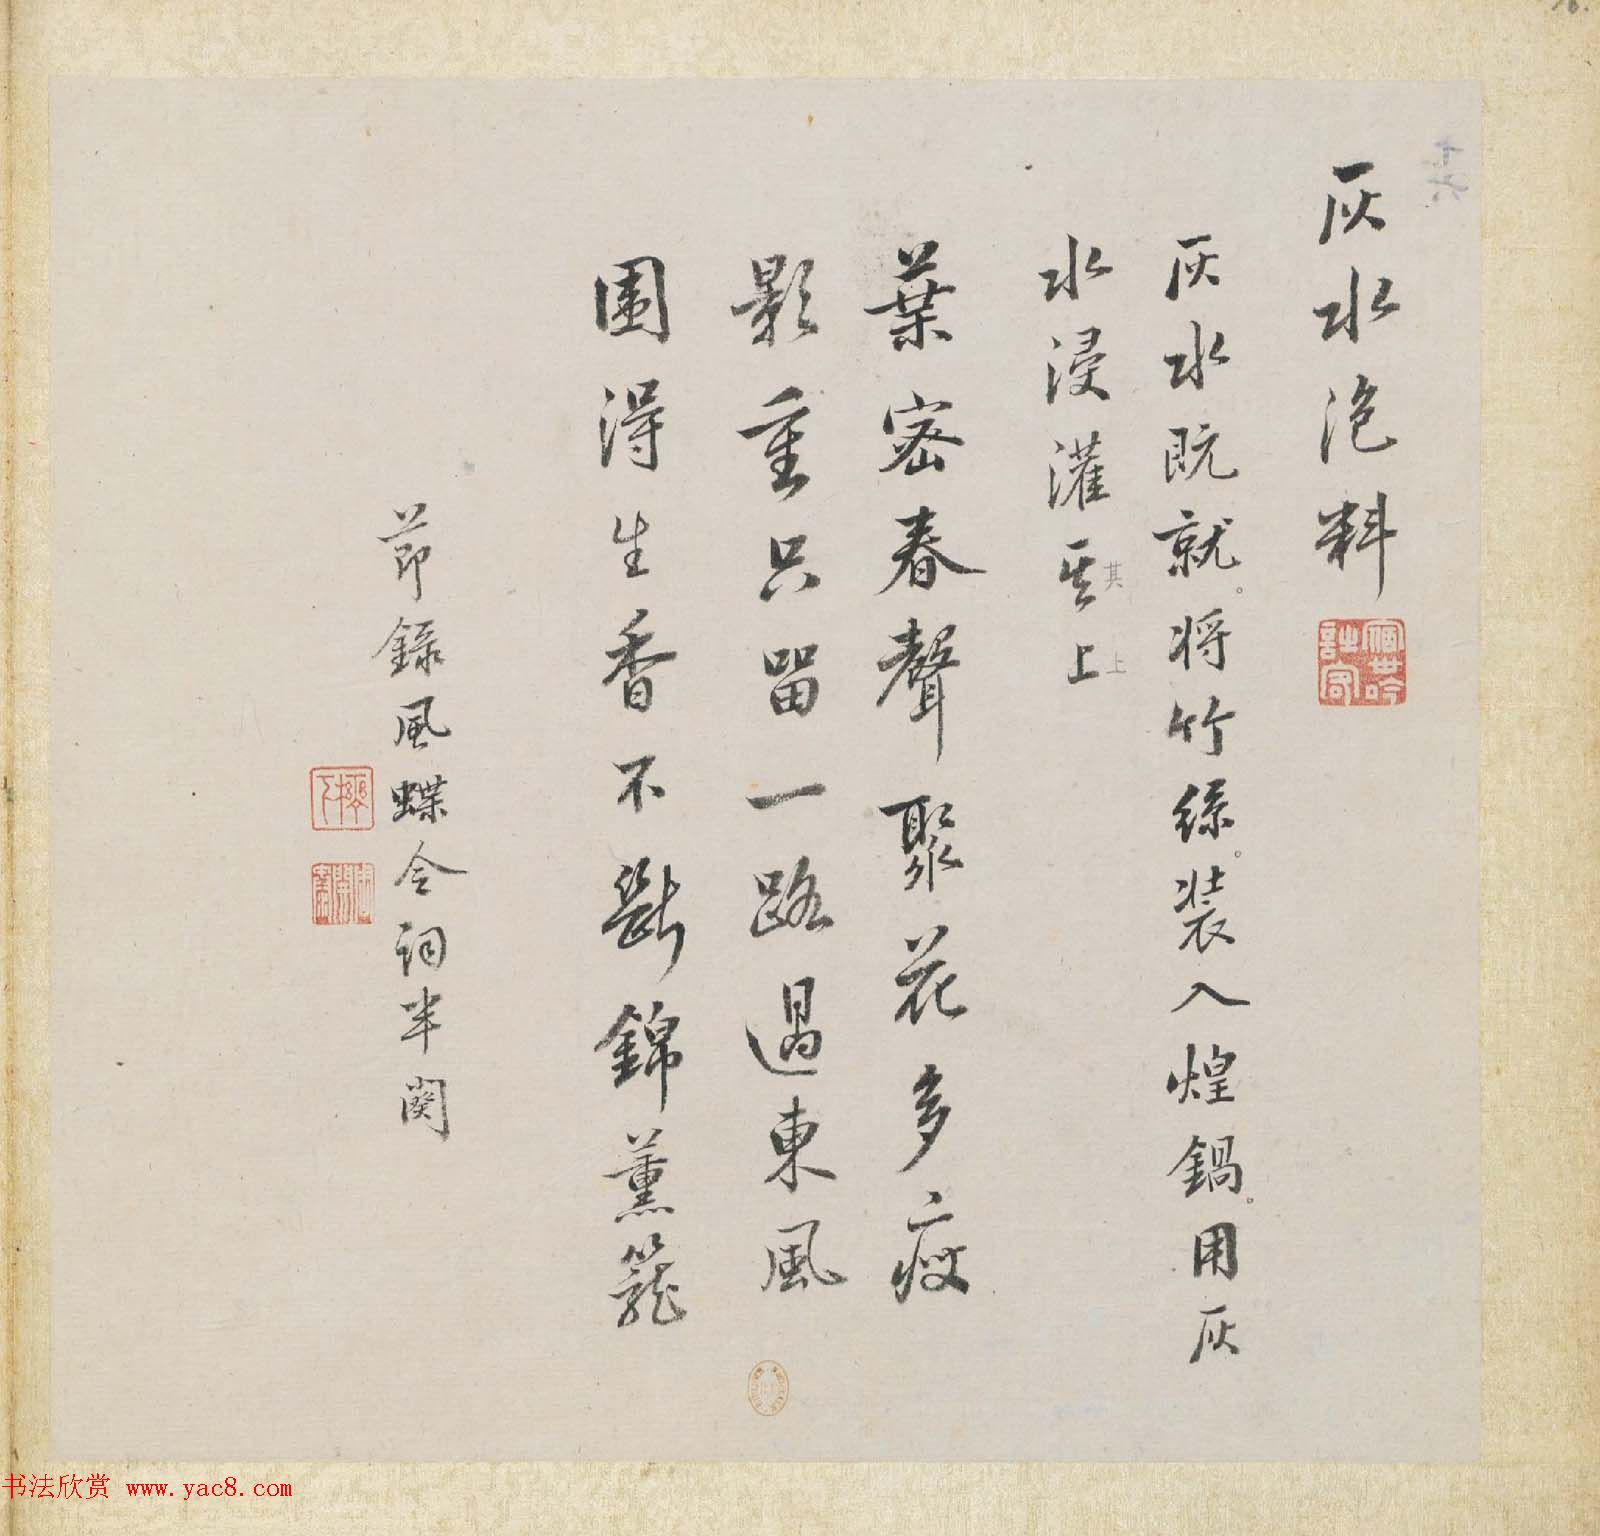 十六
灰水泡料
灰水既就。将竹絲。装入煌鍋。用灰
水浸灌其上
其上
葉密春聲聚花多瘦
影重只留一路過東風
圍得生香不斷錦薰籠
節錄風蝶令詞半闋
书法欣赏 www.yac8.com